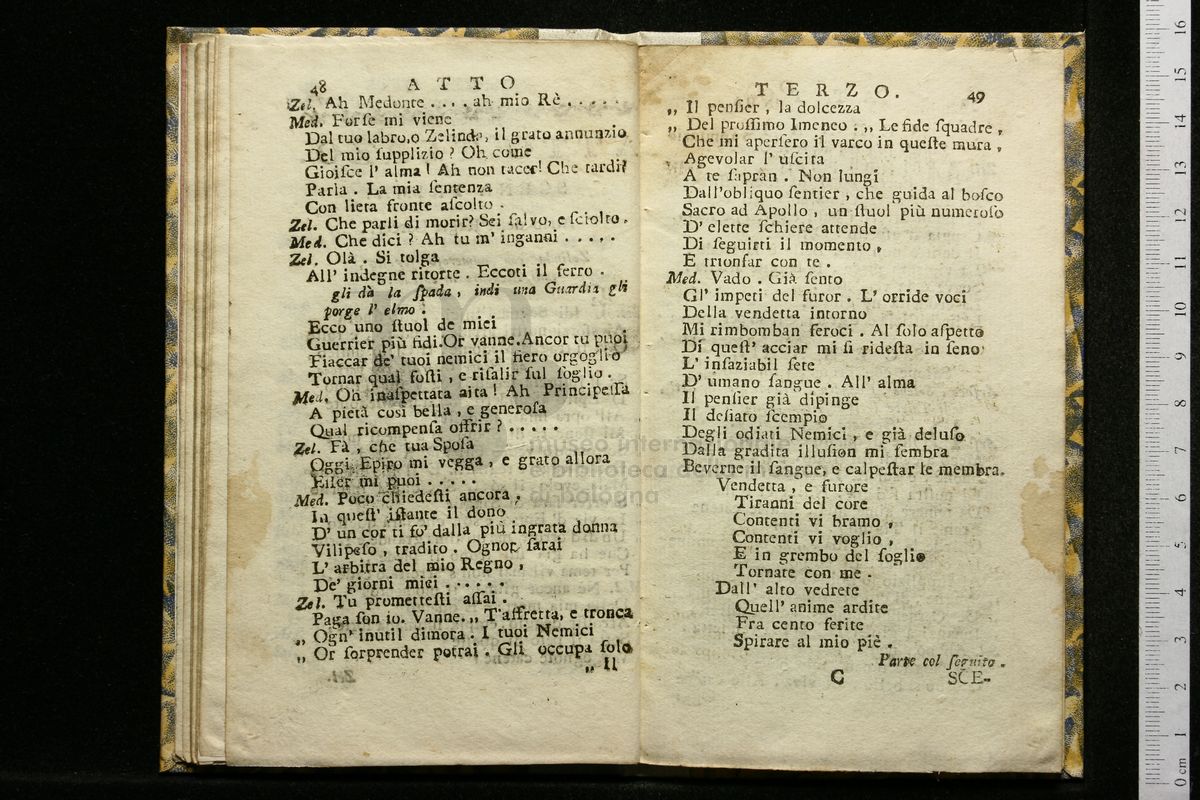 48 ATTO
Zel. Ah Medonte .... ah mio Rè .....
Med. Forſe mi viene
Dal tuo labro, o Zelinda, il grato annunzio
Del mio ſupplizio ? Oh come
Gioiſce l' alma ! Ah non tacer! Che tardi?
Parla . La mia ſentenza
Con lieta fronte aſcolto .
Zel. Che parli di morir? Sei ſalvo, e ſciolto .
Med. Che dici ? Ah tu m' inganni .....
Zel. Olà . Si tolga
All' indegne ritorte . Eccoti il ferro .
gli dà la ſpada , indi una Guardia gli
porge l' elmo .
Ecco uno ſtuol de miei
Guerrier più fidi. Or vanne. Ancor tu puoi
Fiaccar de' tuoi nemici il fiero orgoglio
Tornar qual foſti , e riſalir ſul ſoglio .
Med. Oh inaſpettata aita ! Ah Principeſſa
A pietà così bella , e generoſa
Qual ricompenſa offrir ? .....
Zel. Fà , che tua Spoſa
Oggi Epiro mi vegga , e grato allora
Eſſer mi puoi .....
Med. Poco chiedeſti ancora .
In queſt' iſtante il dono
D' un cor ti fo' dalla più ingrata donna
Vilipeſo , tradito . Ognor ſarai
L' arbitra del mio Regno ,
De' giorni miei ......
Zel. Tu prometteſti aſſai .
Paga ſon io. Vanne. ,, T'affretta, e tronca
,, Ogn' inutil dimora . I tuoi Nemici
,, Or ſorprender potrai . Gli occupa ſolo
,, Il
TERZO. 49
,, Il penſier , la dolcezza
,, Del proſſimo Imeneo . ,, Le fide ſquadre ,
Che mi aperſero il varco in queſte mura ,
Agevolar l' uſcita
A te ſapran . Non lungi
Dall'obliquo ſentier , che guida al boſco
Sacro ad Apollo , un ſtuol più numeroſo
D' elette ſchiere attende
Di ſeguirti il momento ,
E trionfar con te .
Med. Vado . Già ſento
Gl' impeti del furor . L' orride voci
Della vendetta intorno
Mi rimbomban feroci . Al ſolo aſpetto
Di queſt' acciar mi ſi rideſta in ſeno
L' inſaziabil ſete
D' umano ſangue . All' alma
Il penſier già dipinge
Il deſiato ſcempio
Degli odiati Nemici , e già deluſo
Dalla gradita illuſion mi ſembra
Beverne il ſangue, e calpeſtar le membra.
Vendetta , e furore
Tiranni del core
Contenti vi bramo ,
Contenti vi voglio ,
E in grembo del ſoglio
Tornate con me .
Dall' alto vedrete
Quell' anime ardite
Fra cento ferite
Spirare al mio piè .
Parte col ſeguito .
C SCE-
museo internazionale
biblioteca
di bologna
0 cm 1 2 3 4 5 6 7 8 9 10 11 12 13 14 15 16